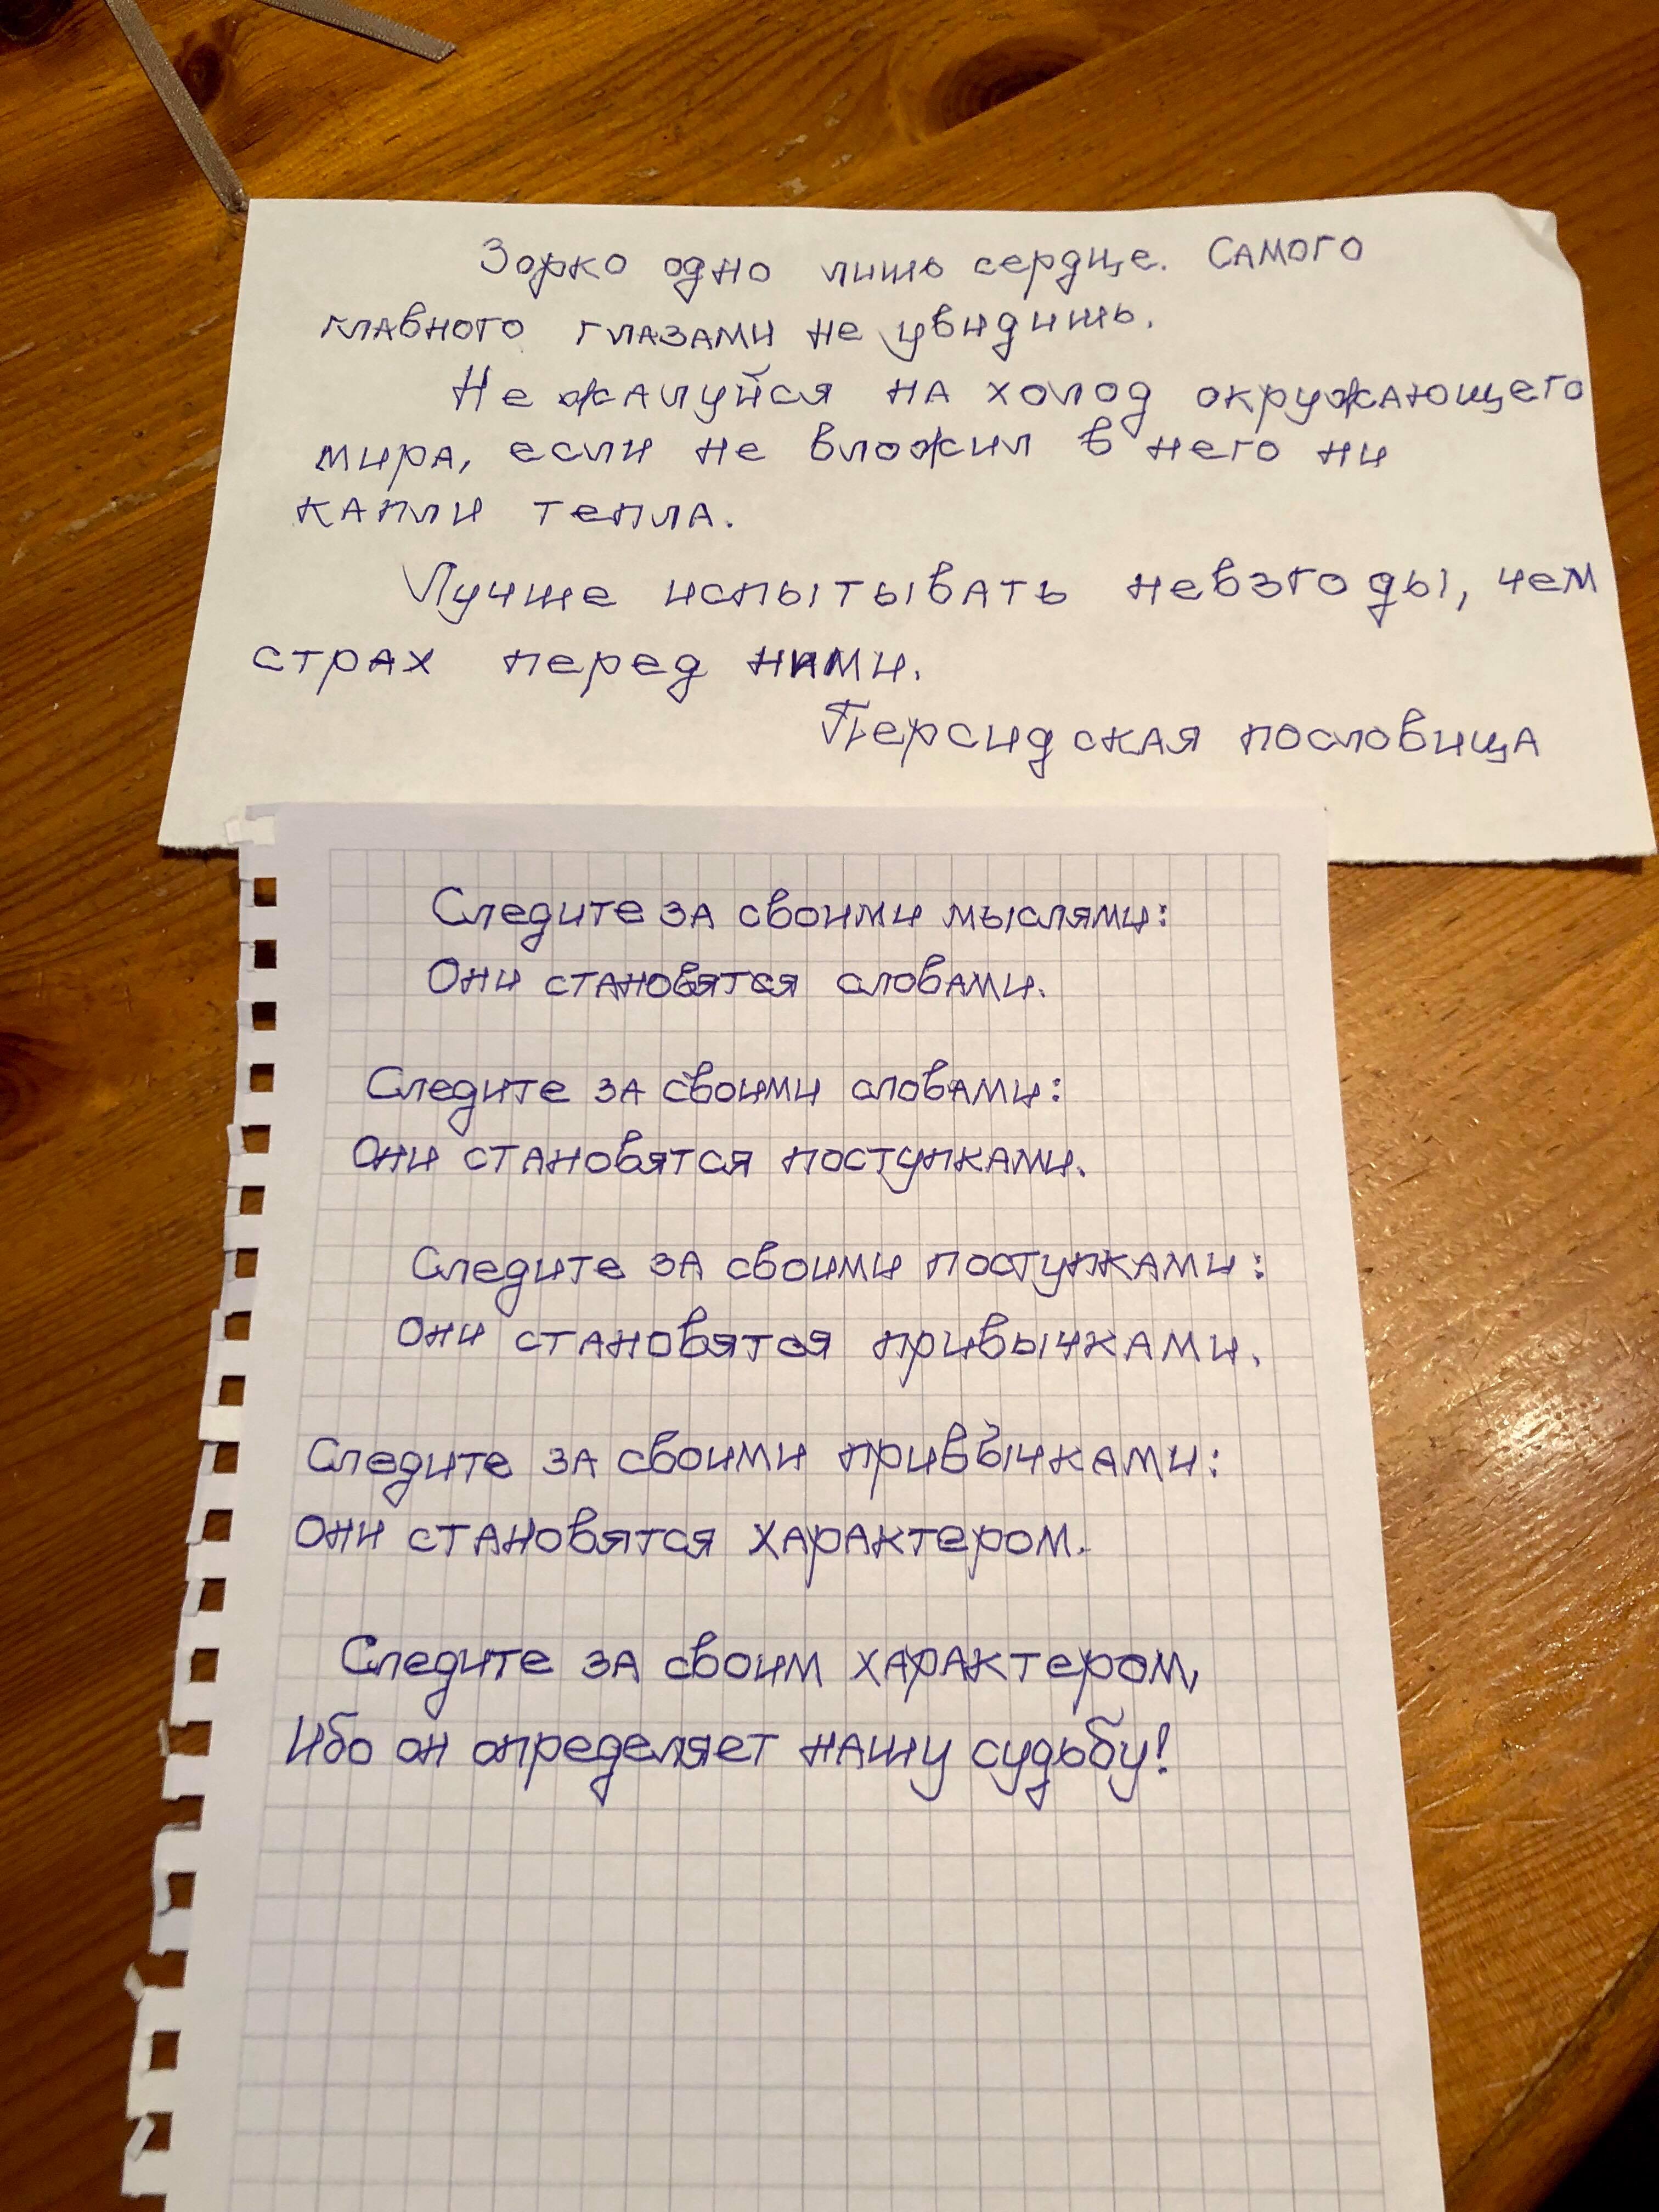 Зорко одно лишь сердце. Самого
главного глазами не увидишь.
Не жалуйся на холод окружающего
мира, если не вложил в него ни
капли тепла.
Лучше испытывать невзгоды, чем
страх перед ними.
Персидская пословица
Следите за своими мыслями:
Они становятся словами.
Следите за своими словами:
Они становятся поступками.
Следите за своими поступками:
Они становятся привычками.
Следите за своими привычками:
Они становятся характером.
Следите за своим характером,
Ибо он определяет нашу судьбу!